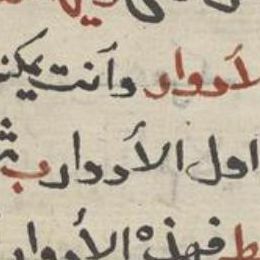 لأدوار وأنت يمكنـ
اول الأدوار ب
ط فهذه الأدوار